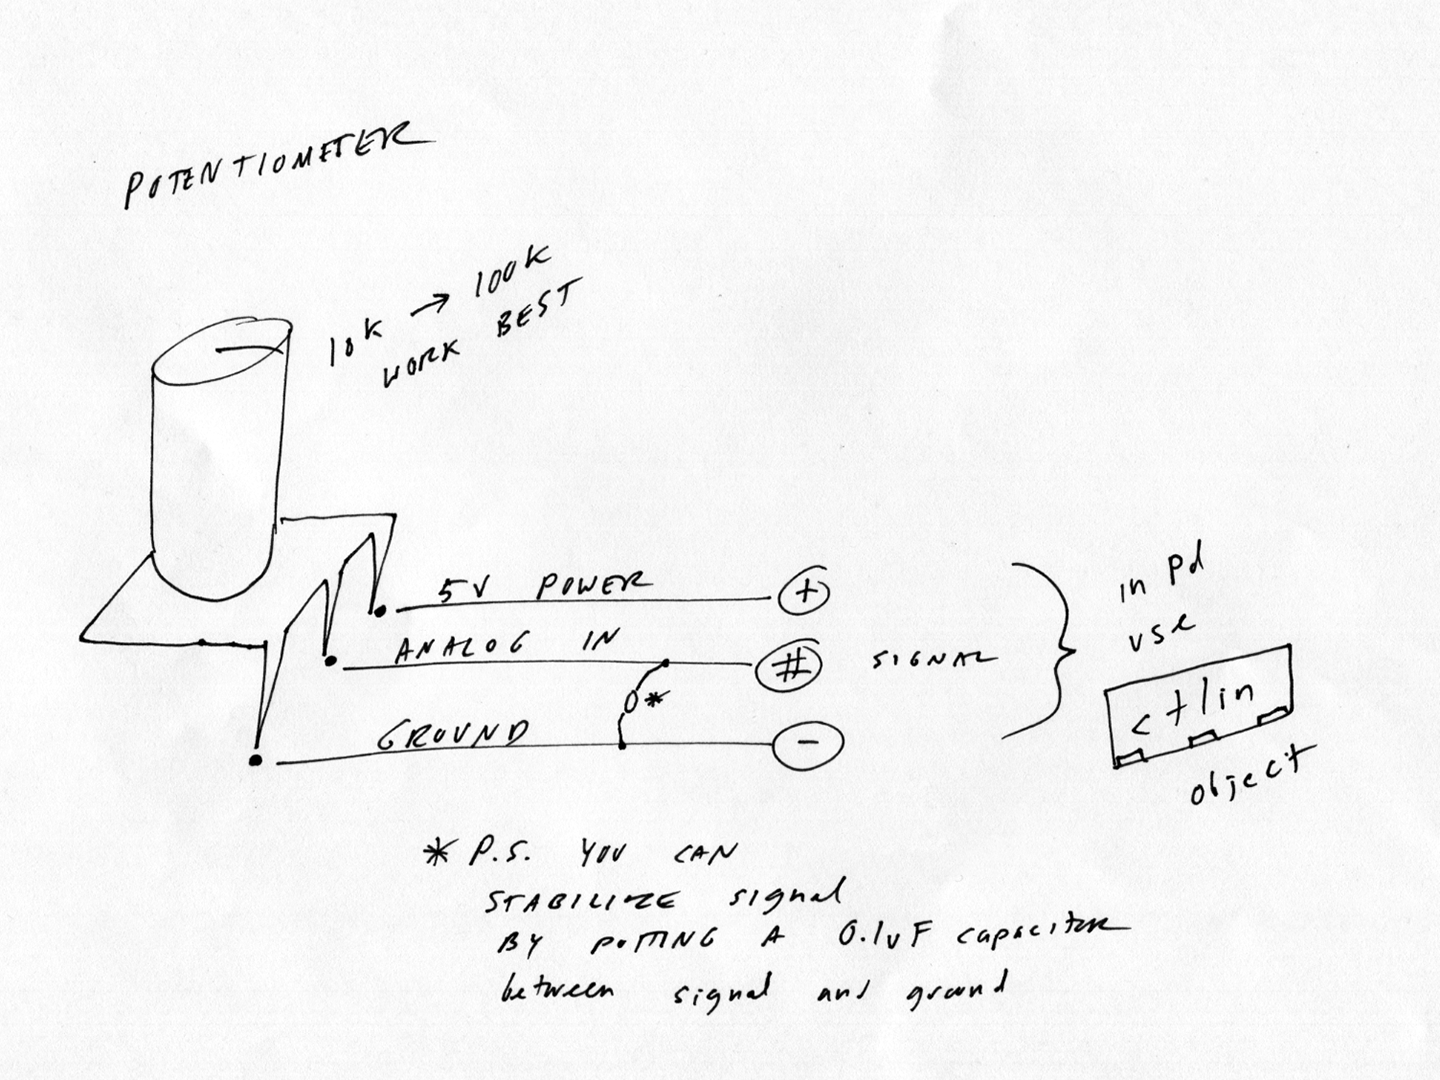 POTENTIOMETER
10K → 100K
WORK BEST
5V POWER +
ANALOG IN # SIGNAL
*
GROUND -
in Pd
use
ctlin
object
* P.S. YOU CAN
STABILIZE signal
BY PUTTING A 0.1uF capacitor
between signal and ground